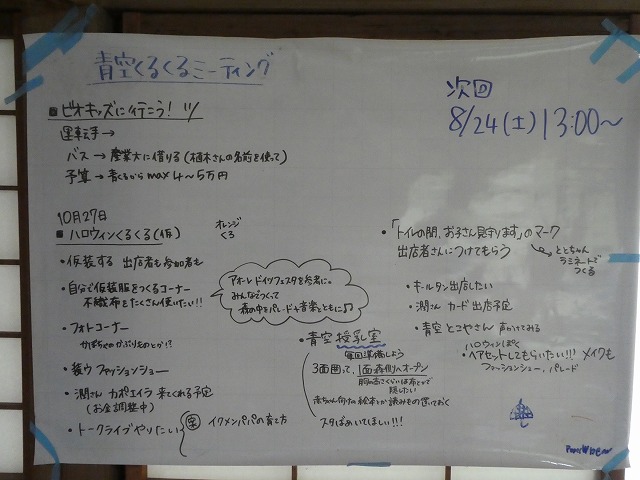 青空くるくるミーティング
次回
8/24(土)13:00〜
■ビオキッズに行こう!
運転手→
バス→産業大に借りる(植木さんの名前を使って)
予算→青くるから max 4〜5万円
10月27日
■ハロウィンくるくる(仮)
オレンジ
くろ
・仮装する 出店者も参加者も
・自分で仮装服をつくるコーナー
不織布をたくさん使いたい!!
・フォトコーナー
かぼちゃのかぶりものとか!?
・装ウ ファッションショー
・潤さん カポエイラ 来てくれる予定
(お金調整中)
・トークライブやりたい
案 イクメンパパの育て方
アオーレ ドイツフェスタを参考に。
みんなでつくって
森の中をパレード+音楽とともに♫
・青空 授乳室
毎回準備しよう
3面囲って、1面森側へオープン
胸の高さくらいは布とかで
隠したい
赤ちゃん向けの絵本とか読みもの置いておく
スタばぁいてほしい!!!
・「トイレの間、お子さん見守ります」のマーク
出店者さんにつけてもらう
ととちゃん
ラミネートで
つくる
・キールタン出店したい
・潤さん カード出店予定
・青空 とこやさん 声かけてみる
ハロウィンぽく
・ヘアセットしてもらいたい!!! メイクも
ファッションショー, パレード